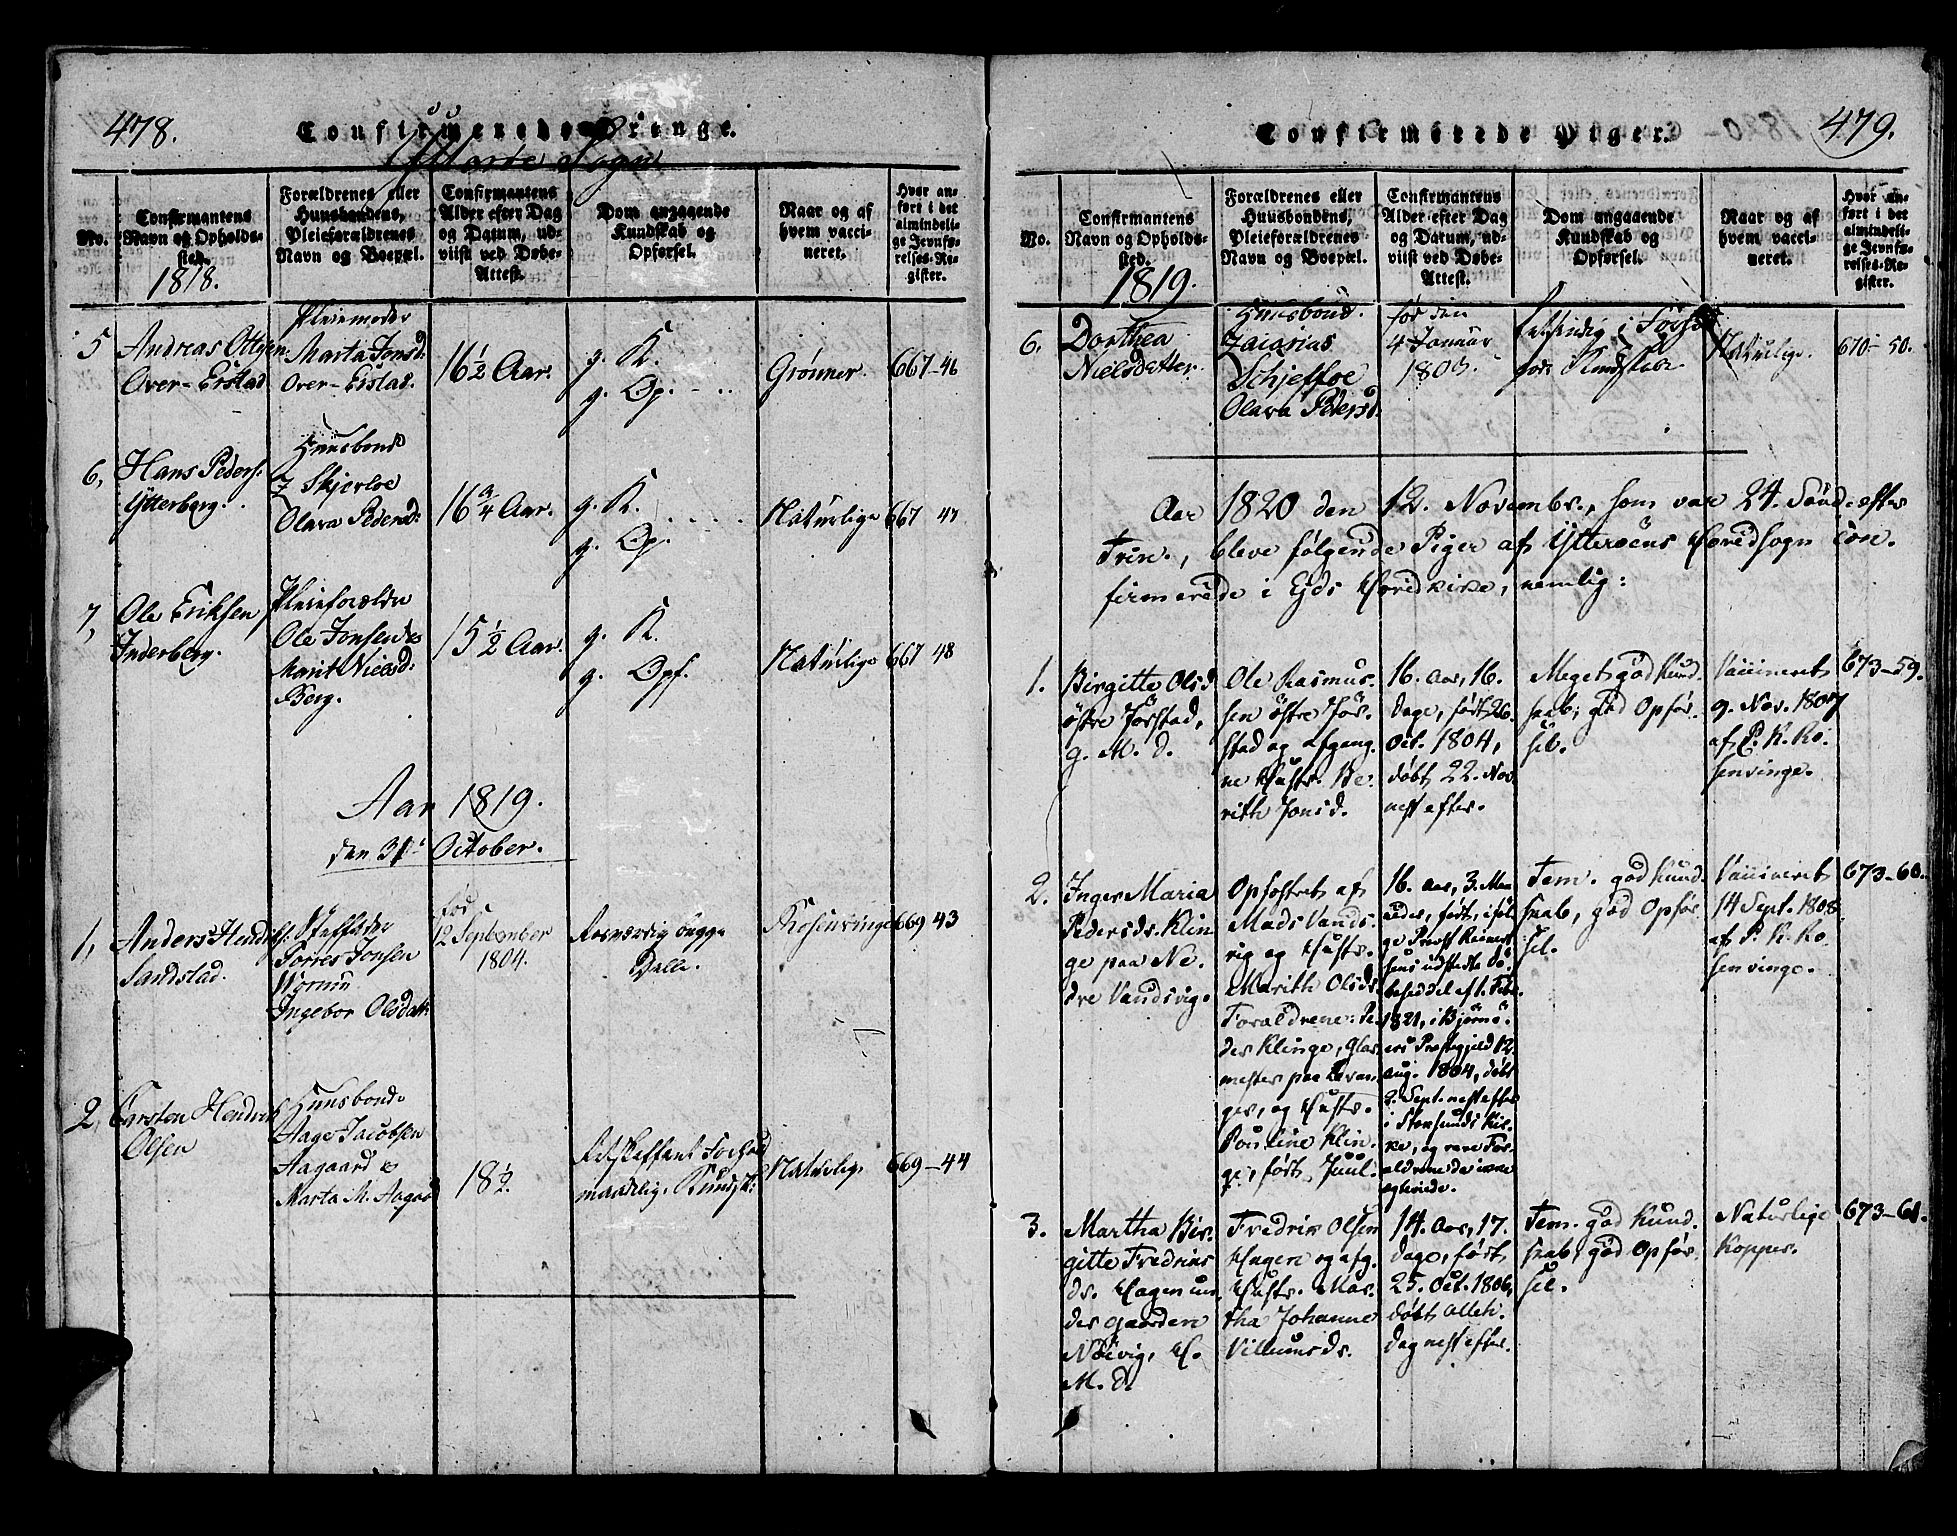 478.
Confirmerede Drenge.
Sogn
No.
Confirmantens
Navn og Opholds-
sted.
1818.
Forældrenes eller
Huusbondens,
Pleieforældrenes
Navn og Boepæl.
Confirmantens
Alder efter Dag
og Datum, ud-
viist ved Døbe-
Attest.
Dom angaaende
Kundskab og
Opførsel.
Naar og af
hvem vacci-
neret.
Hvor an-
ført i det
almindeli-
ge Jevnfø-
relses-Re-
gister.
5
Andreas Ottesen
Over-Erstad
Pleiemoder
Marta Jonsd:
Over-Erstad.
16 1/2 Aar.
g. K.
g. Op.
Grønner.
667-46
6,
Hans Peders.
Ytterberg.
Huusbond
Z Skjerloe
Olava Pedersd:
16 3/4 Aar.
g. K.
g. Op.
Naturlige
667 47
7,
Ole Eriksen
Inderberg.
Pleieforældre
Ole Jonsen &
Marit Nielsd:
Berg.
15 1/2 Aar.
g. K.
g. Opf.
Naturlige
667 48
Aar 1819.
den 31te October.
1,
Anders Hendriks:
Sandstad.
Stiffader
Torres Jonsen
Ingebor Olsdatt:
fød
12 September
1804.
begge
Dele.
Rosenvinge
669 43
2,
Carsten Hendrik
Olsen
Huusbond
Aage Jacobsen
Aagaard &
Marta M. Aagaard
18 1/2.
maadelig Kundsk:
Naturlig
669-44
479.
Confirmerede Piger.
No.
Confirmantens
Navn og Opholds-
sted.
1819.
Forældrenes eller
Huusbondens,
Pleieforældrenes
Navn og Boepæl.
Confirmantens
Alder efter Dag
og Datum, ud-
viist ved Døbe-
Attest.
Dom angaaende
Kundskab og
Opførsel.
Naar og af
hvem vacci-
neret.
Hvor an-
ført i det
almindeli-
ge Jevnfø-
relses-Re-
gister.
6.
Dorthea
Nielsdatter
Huusbond.
Zacarias
Schjefloe
Olava Pedersd.
fød den
4 Januar
1803.
gode Kundskaber
Naturlige.
670-50.
Aar 1820 den 12. Novembr., som var 24. Sønd. efter
Trin., bleve følgende Piger af Ytterøens Hovedsogn con-
firmerede i Ejds Hovedkirke, nemlig:
1.
Birgitte Olsd.
østre Jørstad,
g. M. d.
Ole Rasmus-
sen østre Jør-
stad og afgang-
ne Hustr. Be-
rith Jonsd.
16. Aar, 16.
Dage, født 26.
Oct. 1804,
døbt 22. Nov.
nest efter.
Meget god Kund-
skab, god Opfør-
sel.
Vaccineret
9. Nov. 1807
af P. K. Ro-
senvinge.
673-59.
2.
Inger Maria
Pedersds. Klin
ge paa Ne-
dre Vandsvig.
Opfostret af
Mads Vands-
vig og Hustr.
Marith Olsds.
Forældrene: Pe-
der Klinge, Glar-
mester paa Levan-
ger, og Hustr.
Pouline Klin-
ge, født Juul.
16. Aar, 3. Maa-
neder, født, iføl-
ge Provst
sens udstedte Dø-
beseddel
1821, i Bjørnø-
ers Præstegjeld 12.
Aug. 1804, døbt
2. Sept. nest efter
i Storsunds Kir-
ke, og vare For-
ældrene da ikke
egteviede.
Tem. god Kund-
skab, god Opfør-
sel.
Vaccineret
14 Sept. 1808.
af P. K. Ro-
senvinge.
673-60.
3.
Martha Bir-
gitte Fredriks
ds. Hagen un-
der Gaarden
Næsvig, H.
M. d.
Fredrik Olsen
Hagen og afg.
Hustr. Mar-
tha Johanne
Villumsds.
14. Aar, 17.
Dage, født
25. Oct. 1806,
døbt Alleh.
Dag nest efter.
Tem. god Kund-
skab, god Opfør-
sel.
Naturlige
Kopper.
673-61.